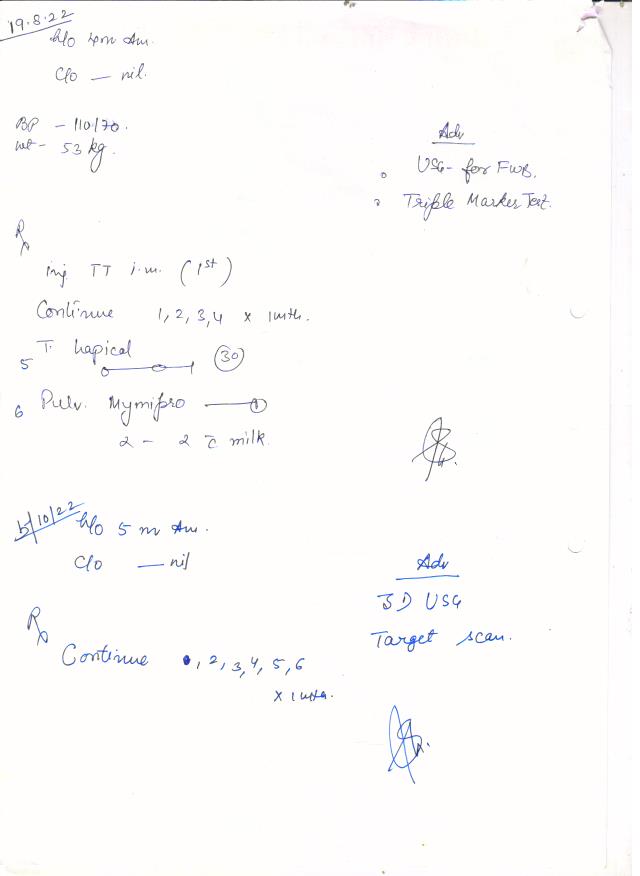 19.8.22
h/o 4m Am.
C/o — nil.
BP - 110/70.
wt - 53 kg.
Adv
USG - for FWB.
Triple Marker Test.
Rx
inj. TT i.m. (1st)
Continue 1, 2, 3, 4 x 1mth.
5 T. hapical 30
6 Pulv. Mymipro — 1
2 - 2 c̄ milk
/10/22
h/o 5 m Am.
C/o — nil
Adv
3D USG
Target scan.
Rx
Continue 1, 2, 3, 4, 5, 6
x 1mth.